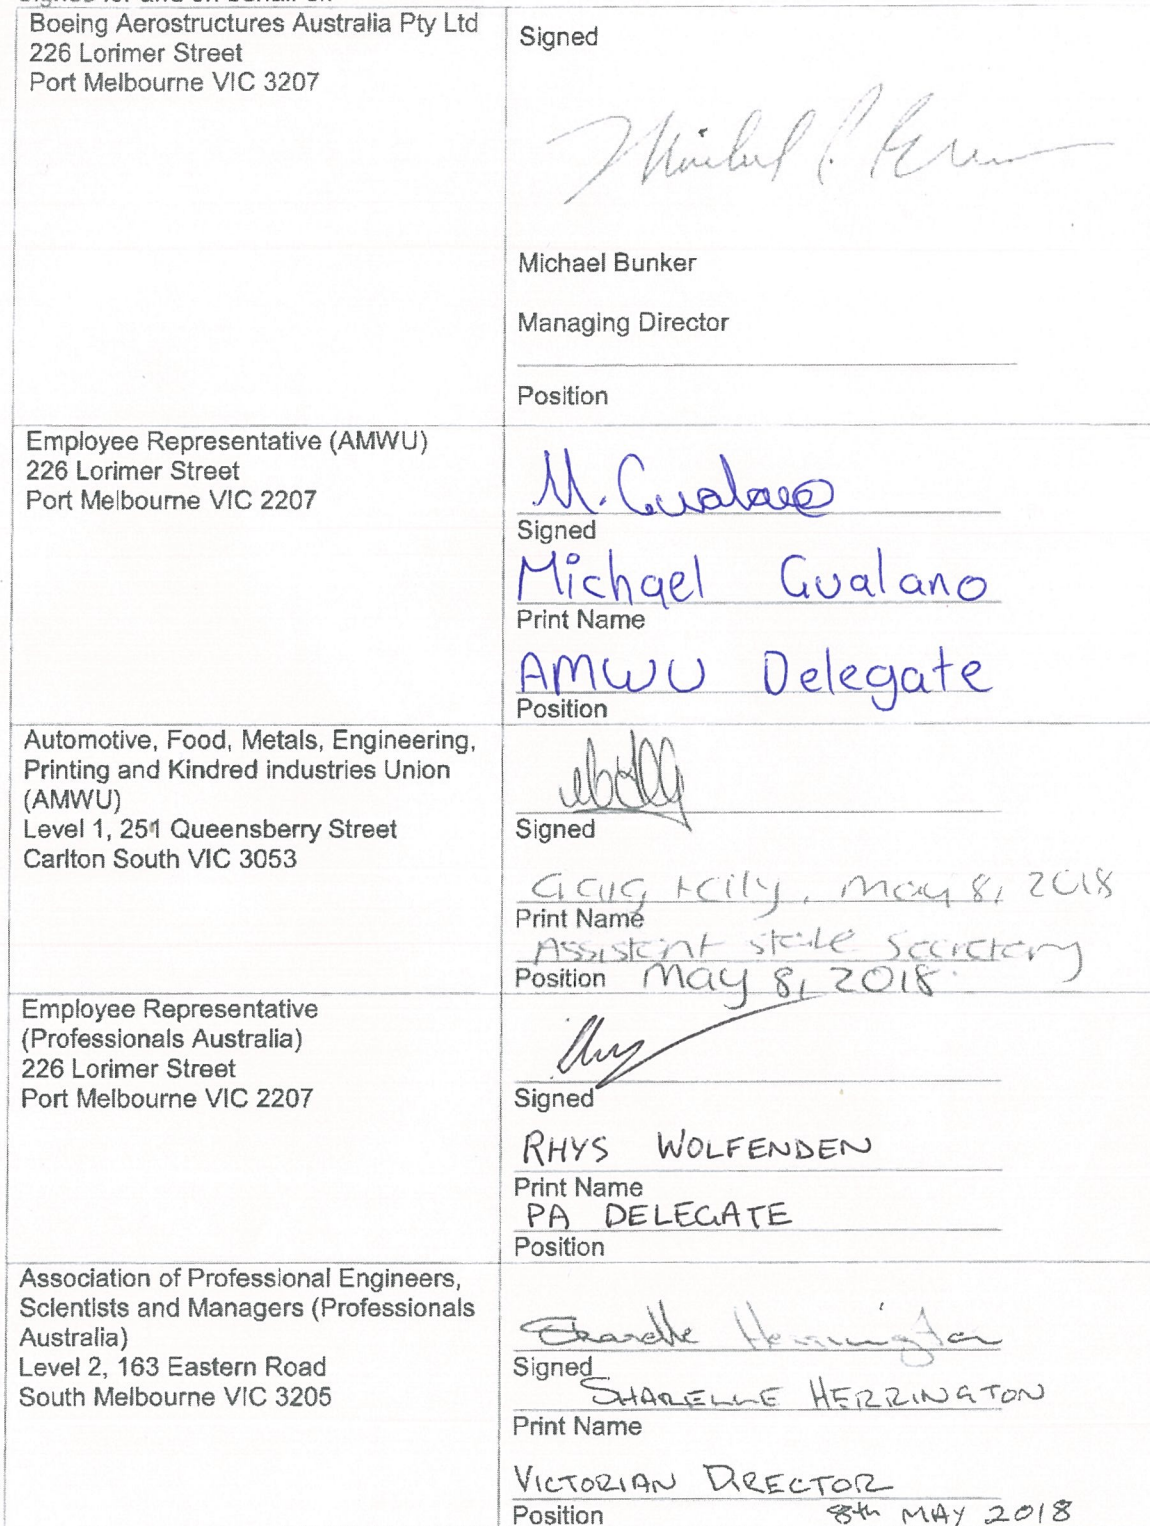 Boeing Aerostructures Australia Pty Ltd
226 Lorimer Street
Port Melbourne VIC 3207
Signed
Michael Bunker
Managing Director
Position
Employee Representative (AMWU)
226 Lorimer Street
Port Melbourne VIC 2207
M. Gualano
Signed
Michael Gualano
Print Name
AMWU Delegate
Position
Automotive, Food, Metals, Engineering,
Printing and Kindred industries Union
(AMWU)
Level 1, 251 Queensberry Street
Carlton South VIC 3053
Signed
May 8, 2018
Print Name
Assistant State Secretary
Position May 8, 2018
Employee Representative
(Professionals Australia)
226 Lorimer Street
Port Melbourne VIC 2207
Signed
RHYS WOLFENDEN
Print Name
PA DELEGATE
Position
Association of Professional Engineers,
Scientists and Managers (Professionals
Australia)
Level 2, 163 Eastern Road
South Melbourne VIC 3205
Sharelle Herrington
Signed
SHARELLE HERRINGTON
Print Name
VICTORIAN DIRECTOR
Position 8th MAY 2018